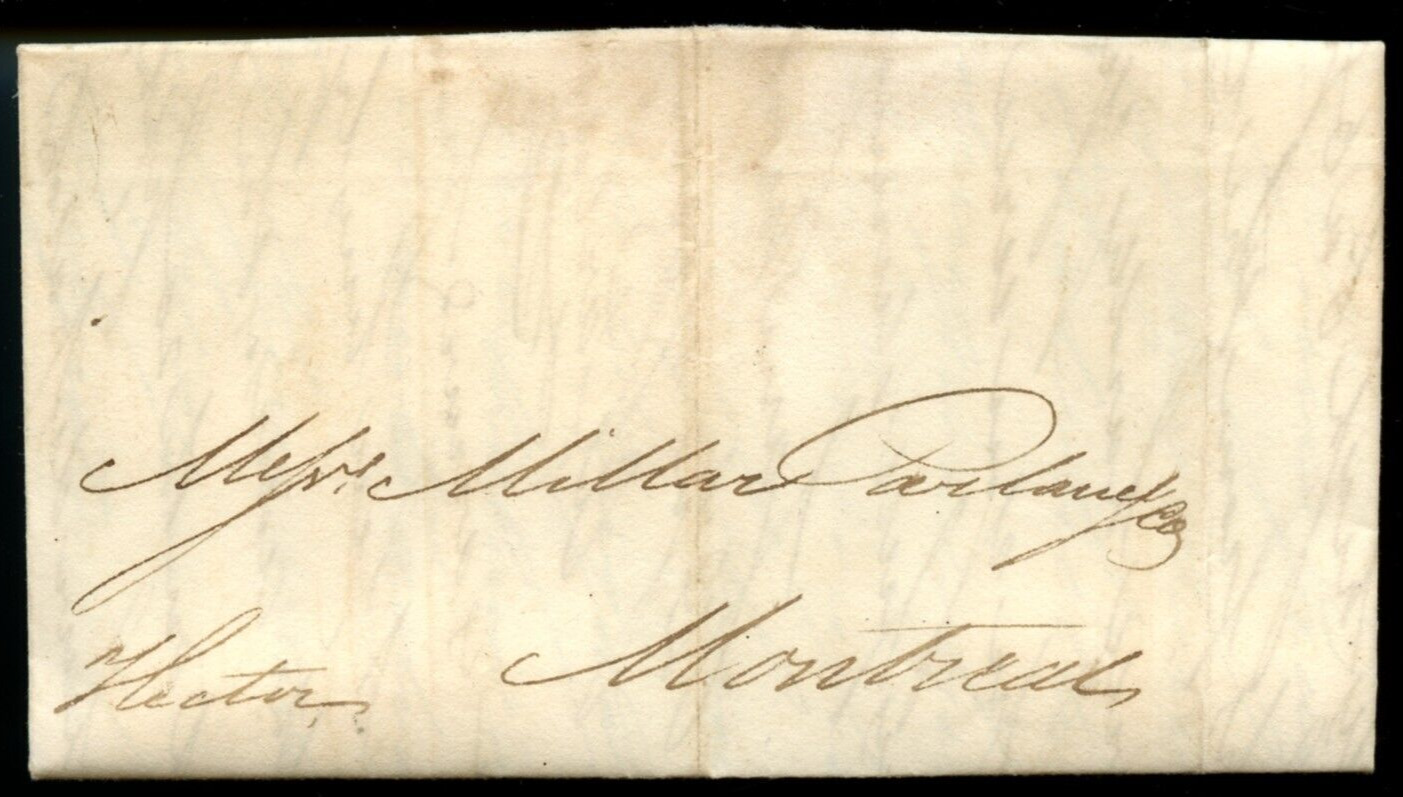 Messrs. Millar Parlane & Co
Montreal
Hector